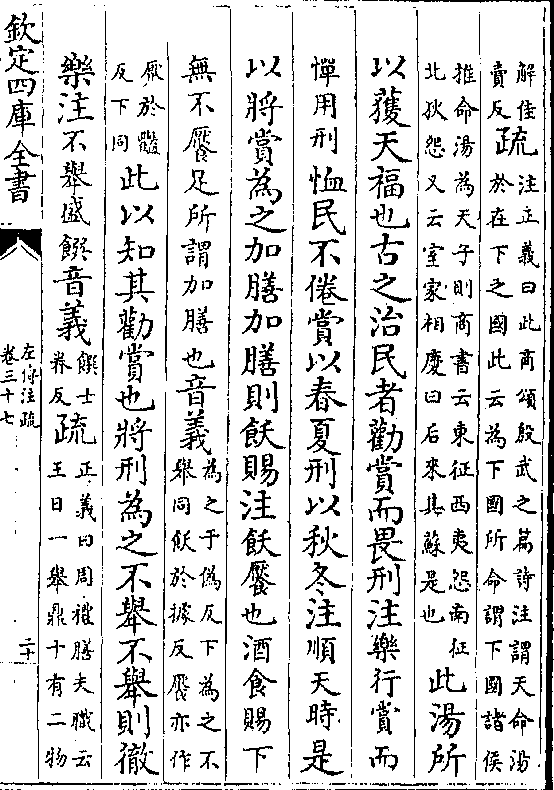 解佳賣反疏注正義曰此商頌殷武之篇詩注謂天命湯於在下之國此云為下國所命謂下國諸侯
推命湯為天子則商書云東征西夷怨南征北狄怨又云室家相慶曰后來其蘇是也此湯所
以獲天福也古之治民者勸賞而畏刑注樂行賞而
憚用刑恤民不倦賞以春夏刑以秋冬注順天時是
以將賞為之加膳加膳則飫賜注飫饜也酒食賜下
無不饜足所謂加膳也音義為之于偽反下為之不舉同飫於據反饜亦作
厭於豔反下同此以知其勸賞也將刑為之不舉不舉則徹
樂注不舉盛饌音義饌士眷反疏正義曰周禮膳夫職云王日一舉鼎十有二物
欽定四庫全書
左傳注疏
卷三十七
二十